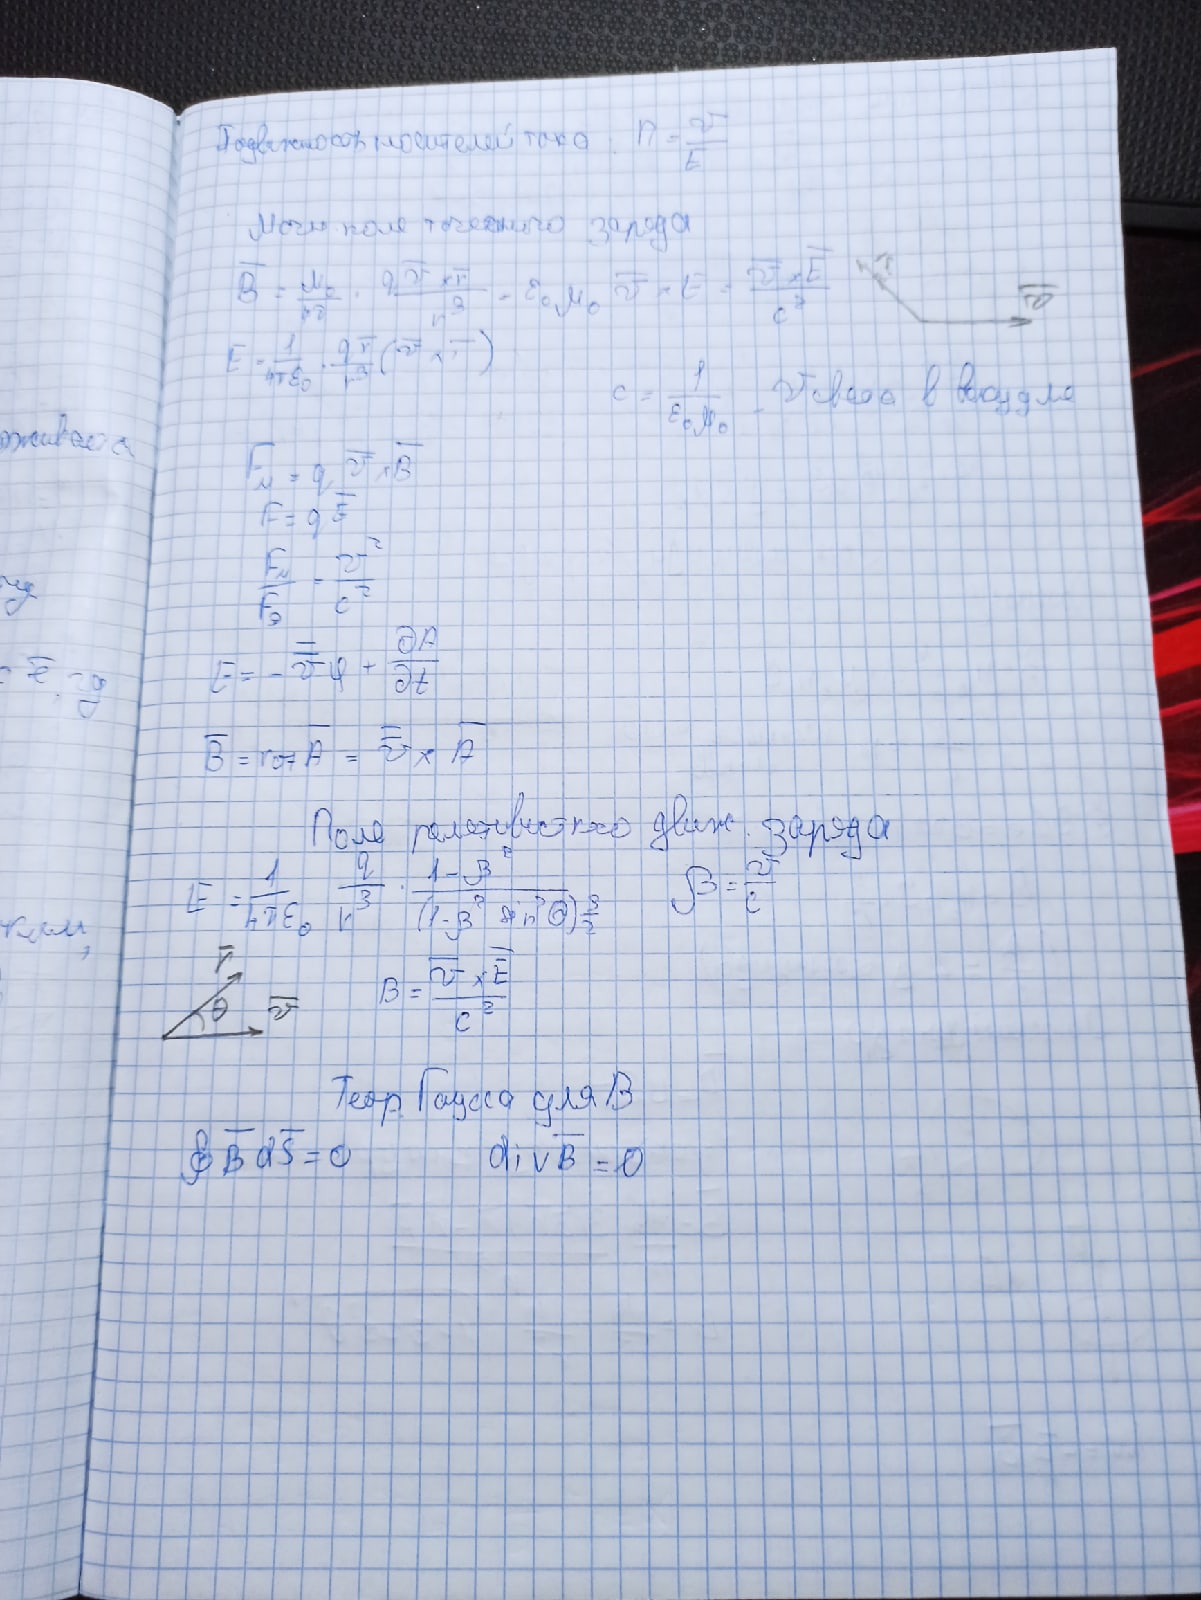 Подвижность носителей тока: П = v/E
Магн поле точечного заряда
B̅ = μ₀/4π · q v̅ × r̅ / r³ = ε₀μ₀ v̅ × E = v̅ × E̅ / c²
r̅
v̅
E = 1/4πε₀ · q r̅/r³ (v̅ × r̅)
c = 1/ε₀μ₀ - v света в вакууме
F̅м = q v̅ × B̅
F = q E̅
Fм/Fэ = v²/c²
E = - v̿ φ + ∂A/∂t
B̅ = rot A̅ = v̿ × A̅
Поле релятивистского движ. заряда
E = 1/4πε₀ q/r³ · 1-β² / (1-β² sin²θ)^3/2
β = v/c
r̅
θ
v̅
B = v̅ × E̅ / c²
Теор. Гаусса для B
∮ B̅ dS̅ = 0 div B̅ = 0